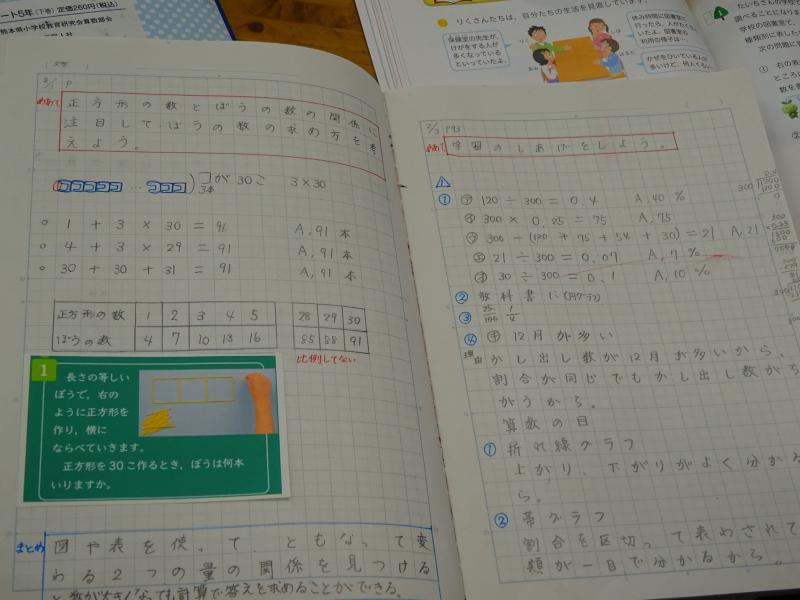 ート5年(下巻)定価260円(税込)
熊本県小学校教育研究会算数部会
りくさんたちは、自分たちの生活を見直しています。
保健室の先生が、
けがをする人が
多くなっていると
いっていたよ。
休み時間に図書室に
行ったら、人がたく
いたよ。図書室の
利用の様子は…
かぜをひいている人が
多いけど、何人くら
たいちさんの学校
調べることになりま
学校の図書室で、
種類別に表した
次の問題に
① 右の表
ところに
数を書
2/1 P
めあて 正方形の数とぼうの数の関係に
注目して、ぼうの数の求め方を考
えよう。
コココココ…コココ)コが30こ 3×30
3本
1+3×30=91 A,91本
4+3×29=91 A,91本
30+30+31=91 A,91本
正方形の数 1 2 3 4 5 28 29 30
ぼうの数 4 7 10 13 16 85 88 91
比例してない
1 長さの等しい
ぼうで、右の
ように正方形を
作り、横に
ならべていきます。
正方形を30こ作るとき、ぼうは何本
いりますか。
まとめ 図や表を使って、ともなって変
わる2つの量の関係を見つける
と数が大きくなっても計算で答えを求めることができる。
2/3 P93
めあて 学習のしあげをしよう。
1
① ㋐ 120÷300=0.4 A,40%
㋑ 300×0.25=75 A,75
㋒ 300-(120+75+54+30)=21 A,21
㋓ 21÷300=0.07 A,7%
㋔ 30÷300=0.1 A,10%
② 教科書に(円グラフ)
③ 25/100 1/4
④ 12月が多い
理由 かし出し数が12月が多いから、
割合が同じでもかし出し数がち
がうから。
算数の目
① 折れ線グラフ
上がり、下がりがよく分かるか
ら。
② 帯グラフ
割合を区切って表わされて
類が一目で分かるから。